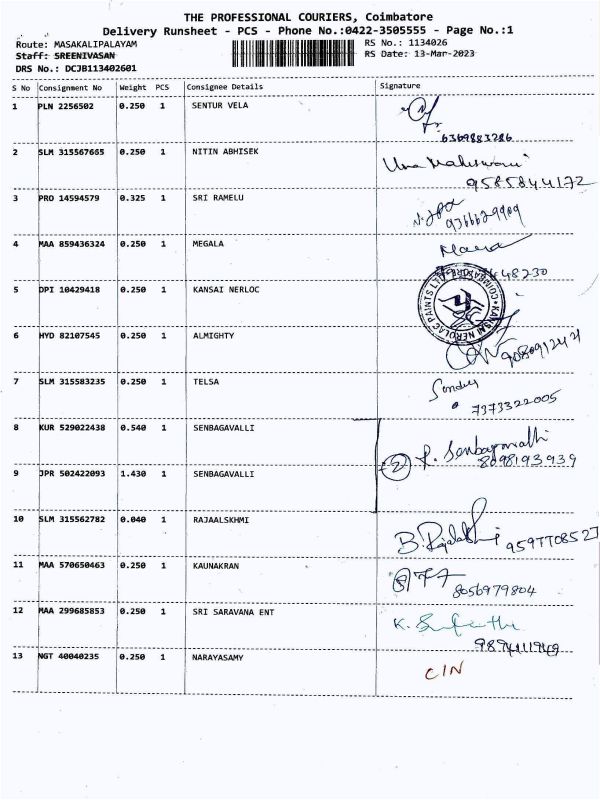 THE PROFESSIONAL COURIERS, Coimbatore
Delivery Runsheet - PCS - Phone No.:0422-3505555 - Page No.:1
Route: MASAKALIPALAYAM RS No.: 1134026
Staff: SREENIVASAN RS Date: 13-Mar-2023
DRS No.: DCJB113402601
S No Consignment No Weight PCS Consignee Details Signature
1 PLN 2256502 0.250 1 SENTUR VELA
6369883286
2 SLM 315567665 0.250 1 NITIN ABHISEK Uma Maheswari
9585844172
3 PRO 14594579 0.325 1 SRI RAMELU
9366629909
4 MAA 859436324 0.250 1 MEGALA
48230
5 DPI 10429418 0.250 1 KANSAI NERLOC
KANSAI NEROLAC PAINTS LTD COIMBATORE
6 HYD 82107545 0.250 1 ALMIGHTY
7 SLM 315583235 0.250 1 TELSA
7373322005
8 KUR 529022438 0.540 1 SENBAGAVALLI
2 P. Senbagavalli
8098193939
9 JPR 502422093 1.430 1 SENBAGAVALLI
10 SLM 315562782 0.040 1 RAJAALSKHMI
B. Rajalakshmi 9597708527
11 MAA 570650463 0.250 1 KAUNAKRAN
8056979804
12 MAA 299685853 0.250 1 SRI SARAVANA ENT
13 NGT 40040235 0.250 1 NARAYASAMY
CIN